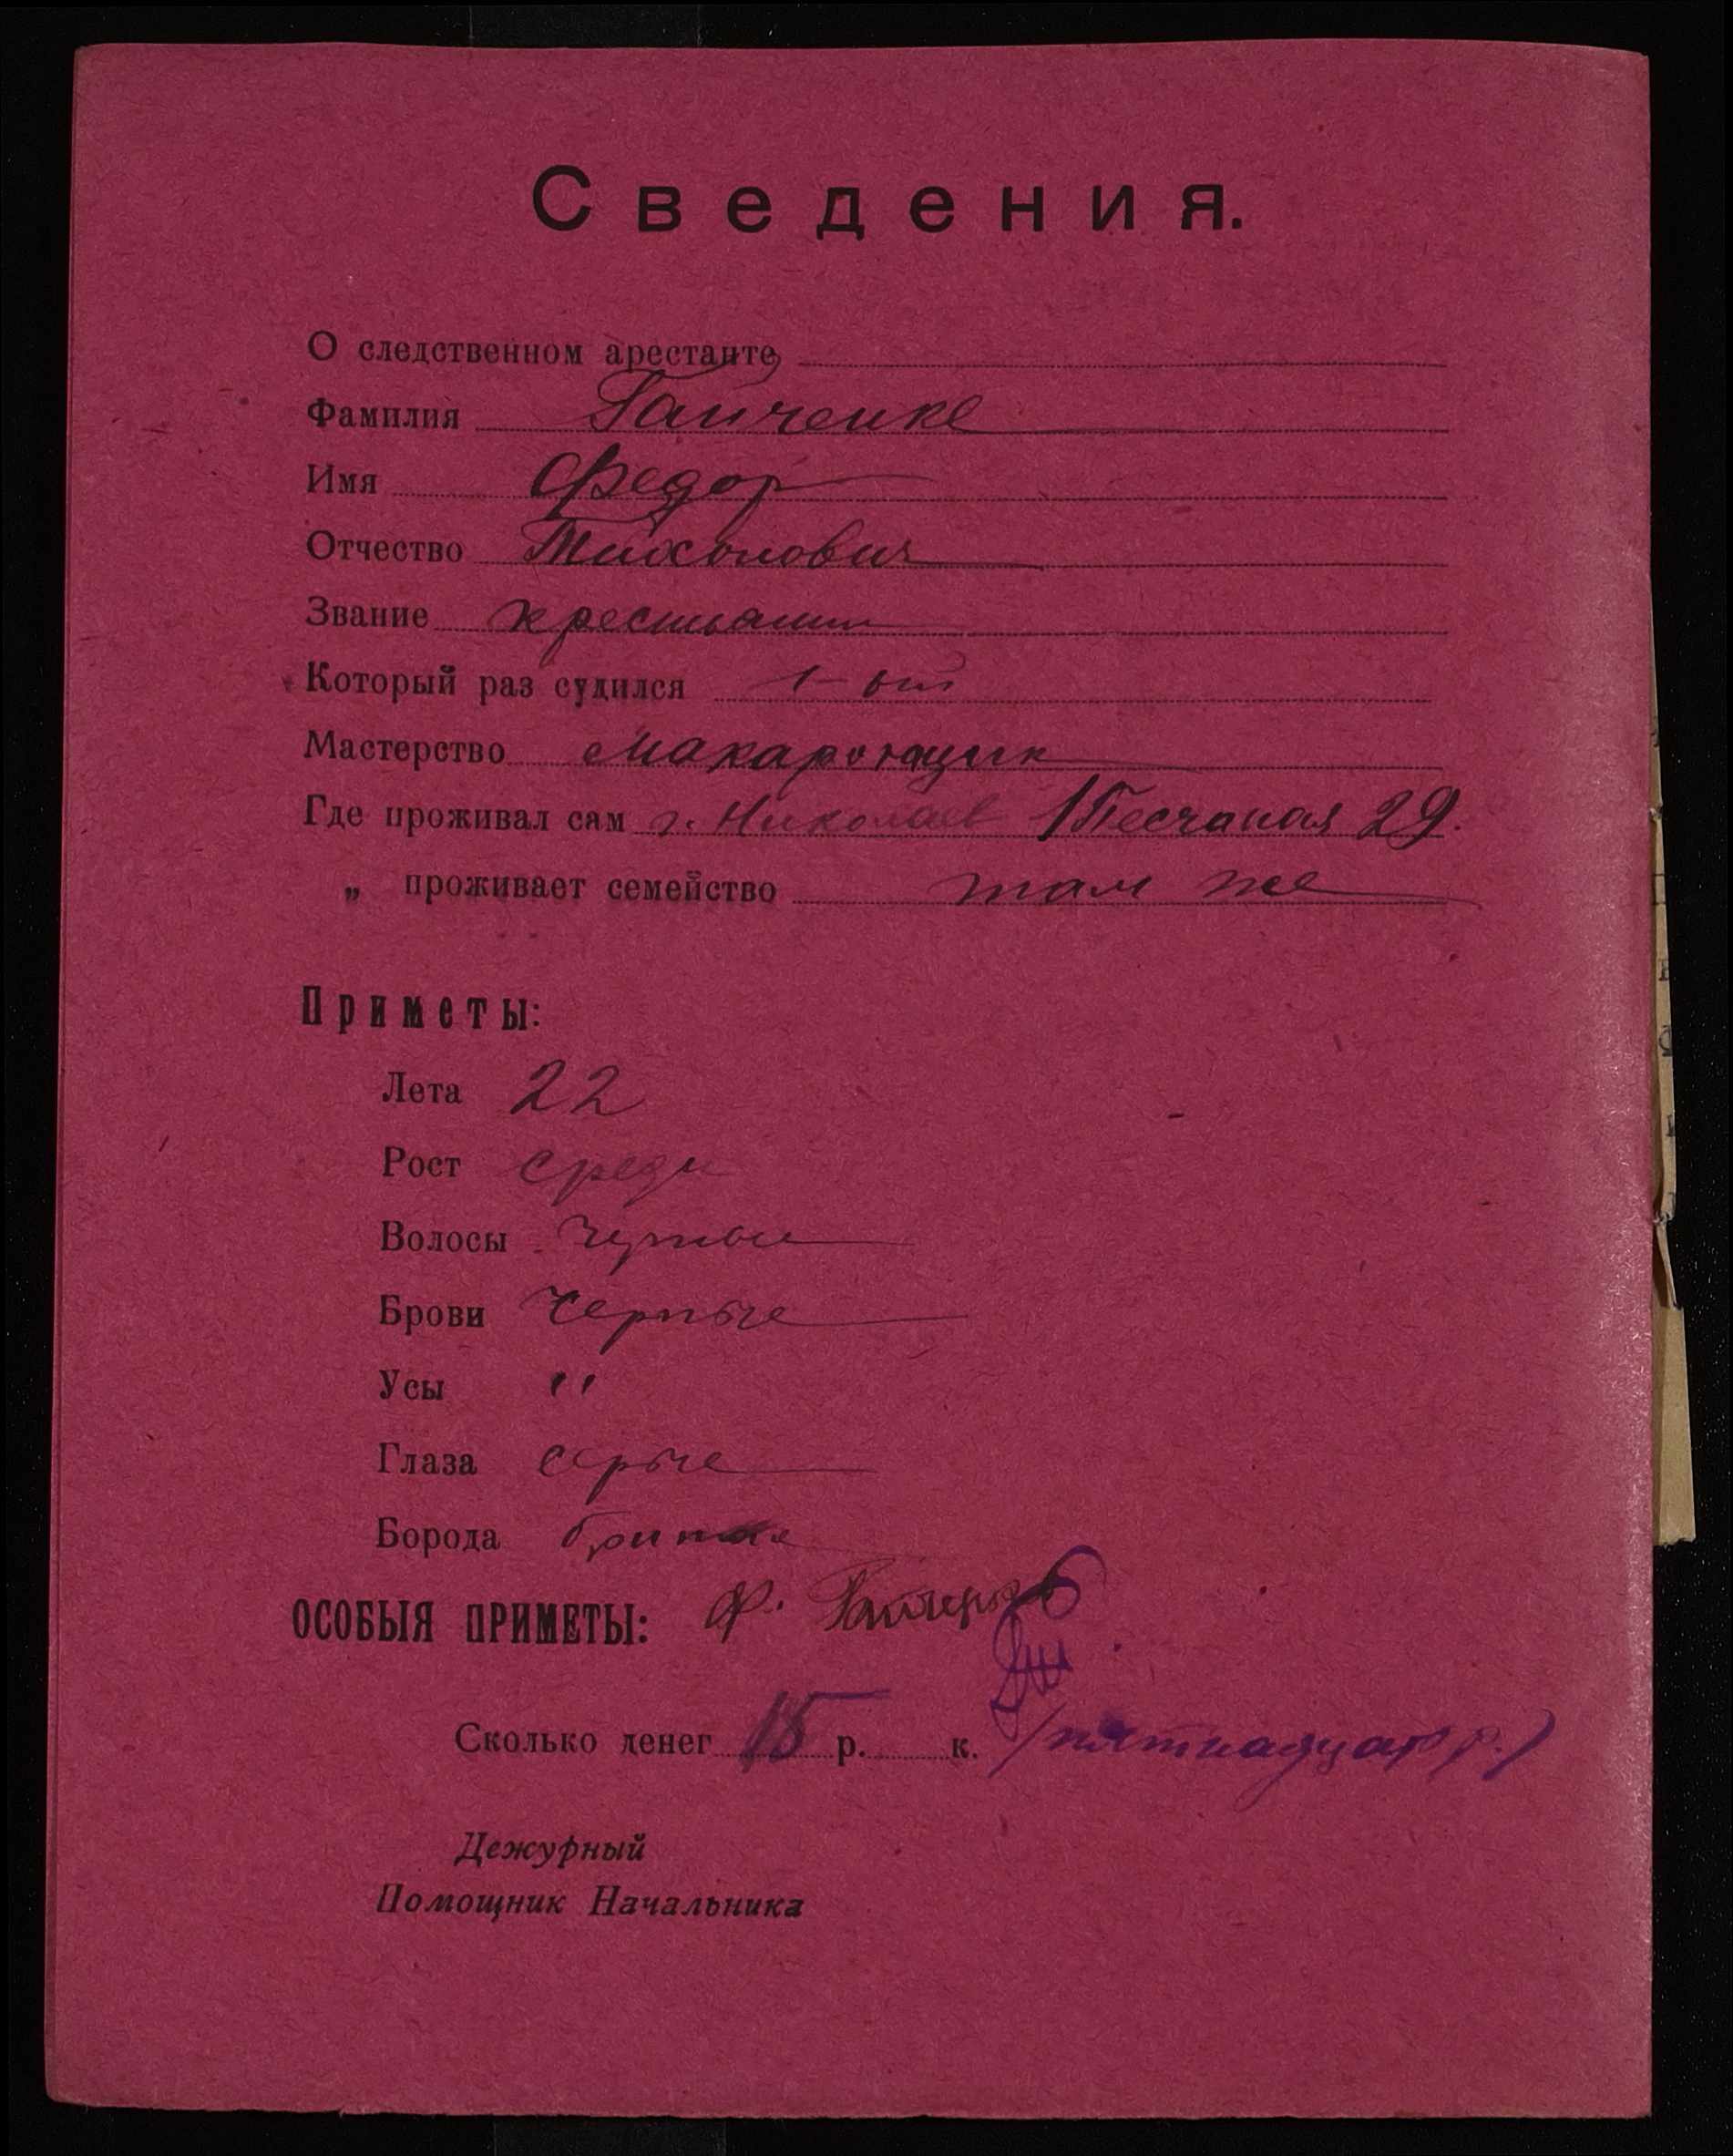 Сведения.
О следственном арестанте
Фамилия Ганченко
Имя Федор
Отчество Тихонович
Звание крестьянин
Который раз судился 1-ый
Мастерство
Где проживал сам г. Николаев 1 Песчаная 29.
„ проживает семейство там же
Приметы:
Лета 22
Рост средн
Волосы черные
Брови черные
Усы "
Глаза серые
Борода бритая
ОСОБЫЯ ПРИМЕТЫ: Ф.
Сколько денег 15 р. к. /пятнадцать р./
Дежурный
Помощник Начальника